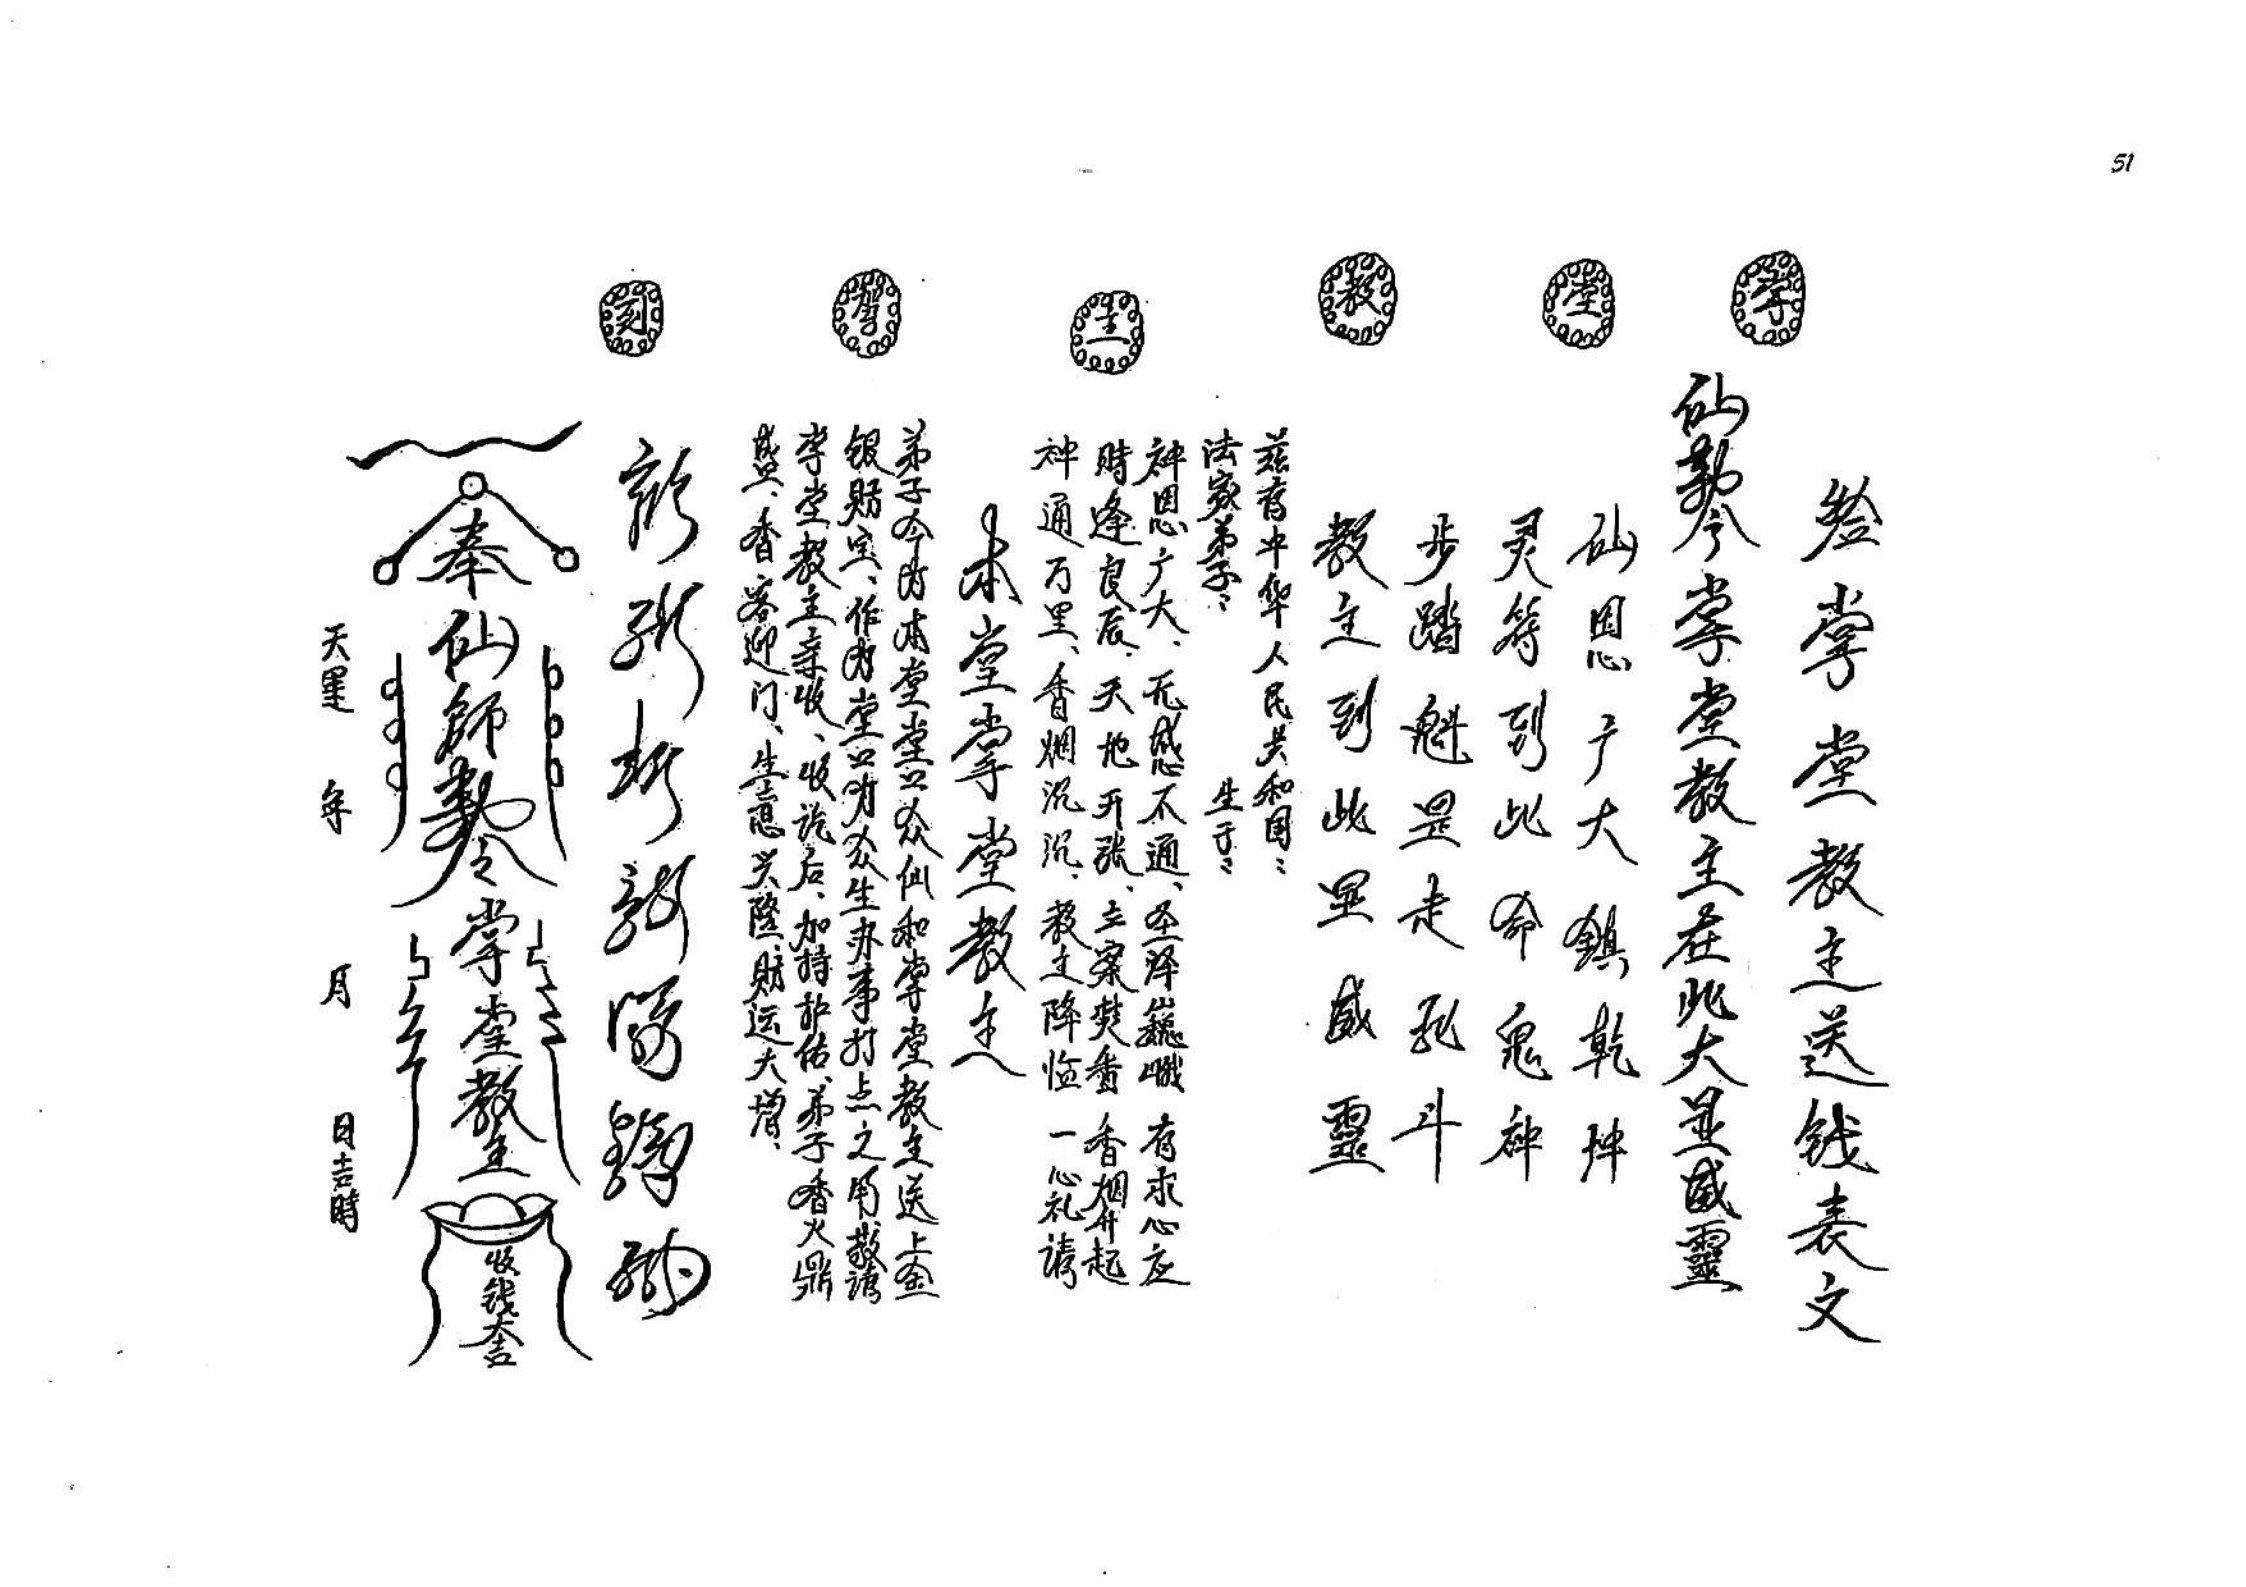 51
掌 堂 教 主 掌 刻
给掌堂教主送钱表文
仙勅令掌堂教主在此大显威靈
仙恩广大鎮乾坤
灵符到此命鬼神
步踏魁罡走孔斗
教主到此显威靈
兹有中华人民共和国:
法家弟子: 生于:
神恩广大、无感不通、圣泽巍峨 有求必应
時逢良辰、天地开张、立案焚香 香烟升起
神通万里、香烟沉沉、教主降临 一心礼请
本堂掌堂教主
弟子今为本堂堂口众仙和掌堂教主送上金
银财宝、作为堂口为众生办事打点之用、敬请
掌堂教主亲收、收讫后、加持护佑、弟子香火鼎
盛、香客迎门、生意兴隆、财运大增、
奉仙師勅令掌堂教主
收钱大吉
天運 年 月 日吉時